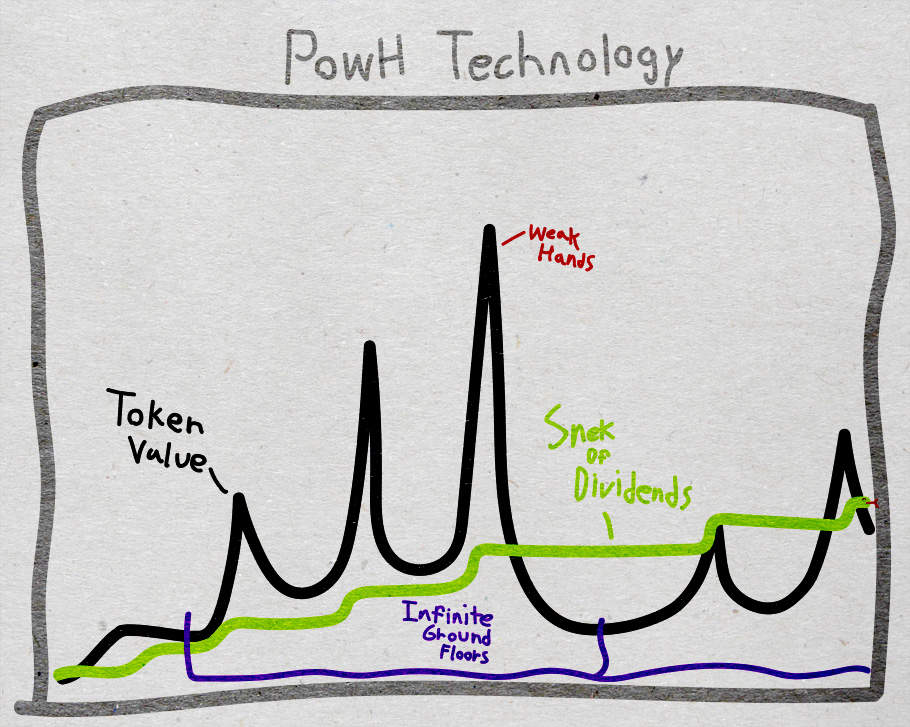 PowH Technology
Weak
Hands
Token
Value
Snek
Of
Dividends
Infinite
Ground
Floors